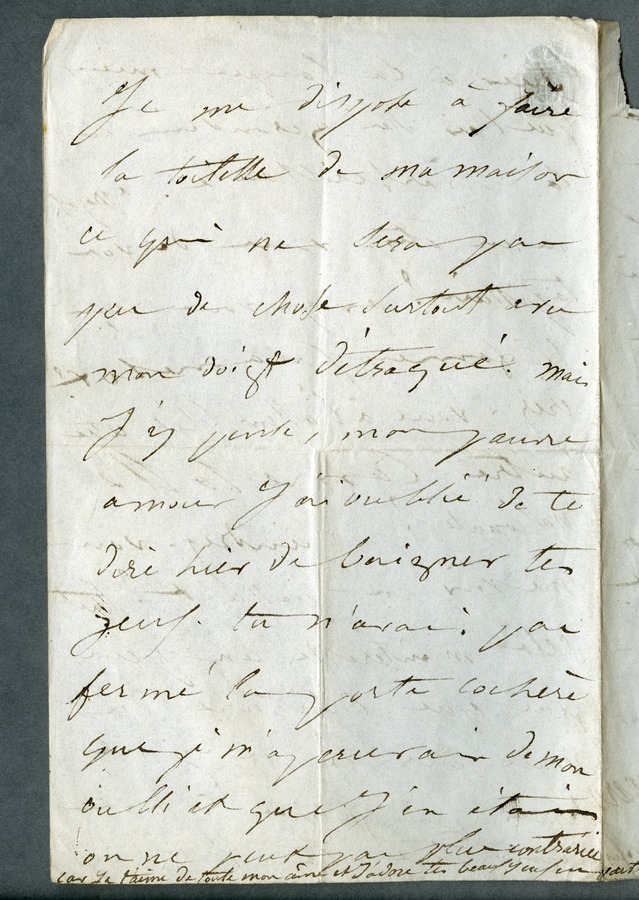 Je me dispose à faire
la toilette de ma maison
ce qui ne sera pas
peu de chose surtout avec
mon doigt détraqué. mais
J'y pense, mon pauvre
amour J'ai oublié de te
dire hier de baigner tes
yeux. tu n'avais pas
fermé la porte cochère
que je m'apercevais de mon
oubli et que J'en étais
on ne peut pas plus contrariée
car Je t'aime de toute mon âme et J'adore tes beaux yeux